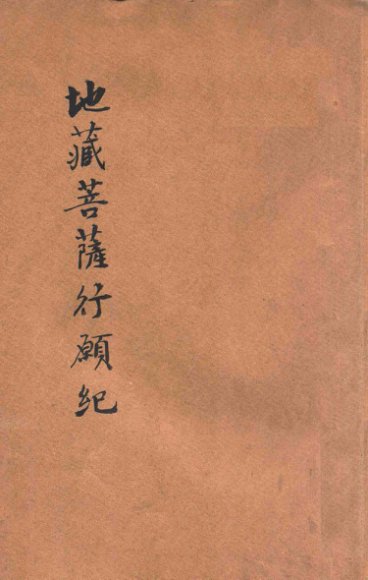 地藏菩薩行願紀